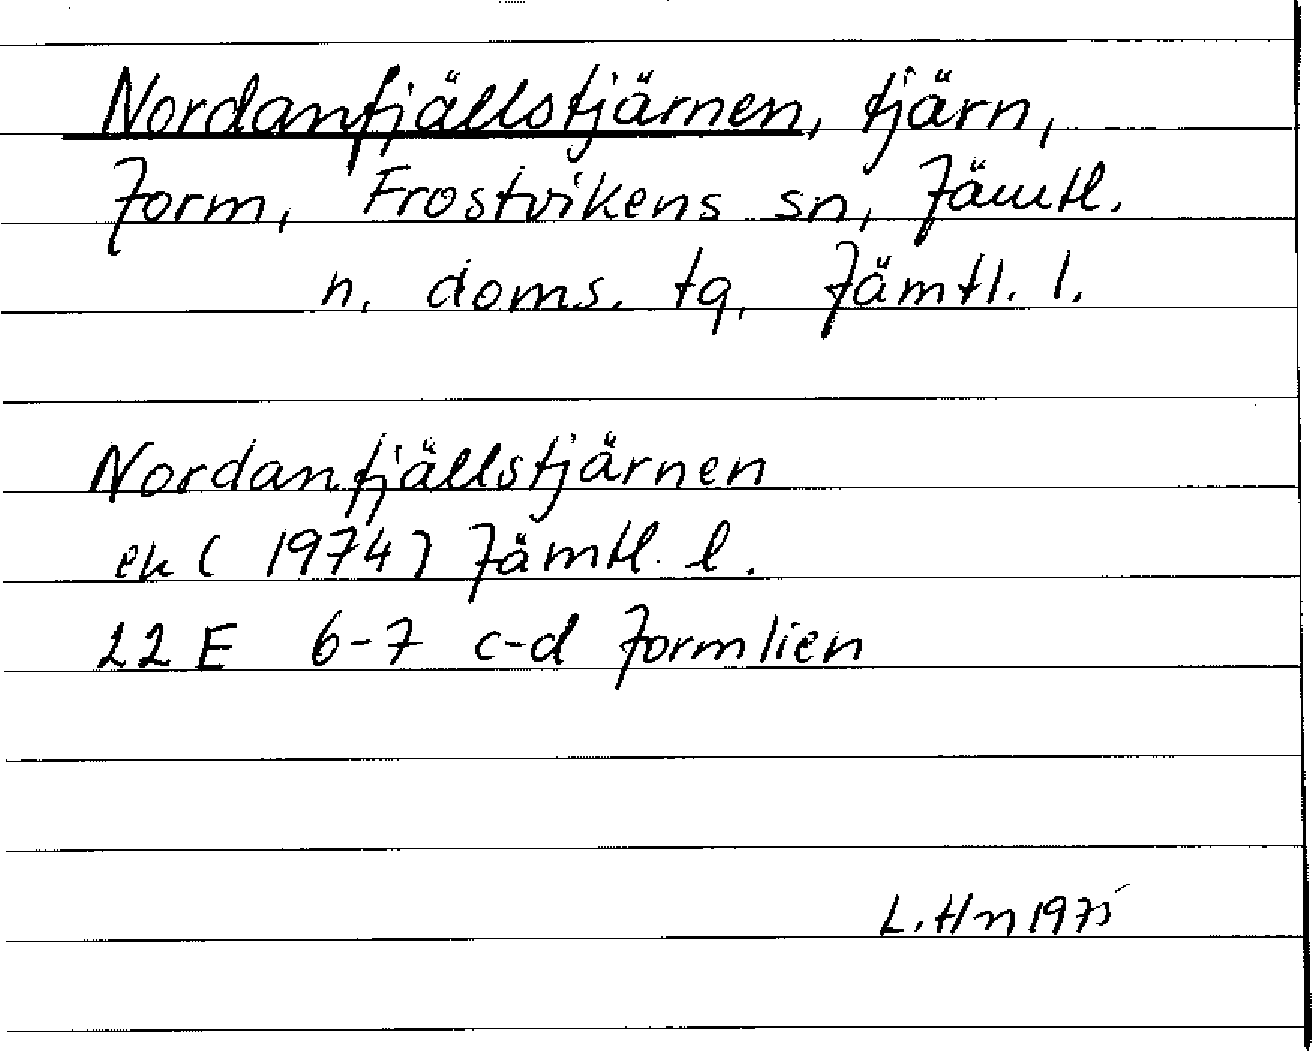 Nordanfjällstjärnen, tjärn,
Jorm, Frostvikens sn, Jämtl.
n. doms. tg, Jämtl. l.
Nordanfjällstjärnen
ek (1974) Jämtl. l.
22 E 6-7 c-d Jormlien
L. Hn 1975